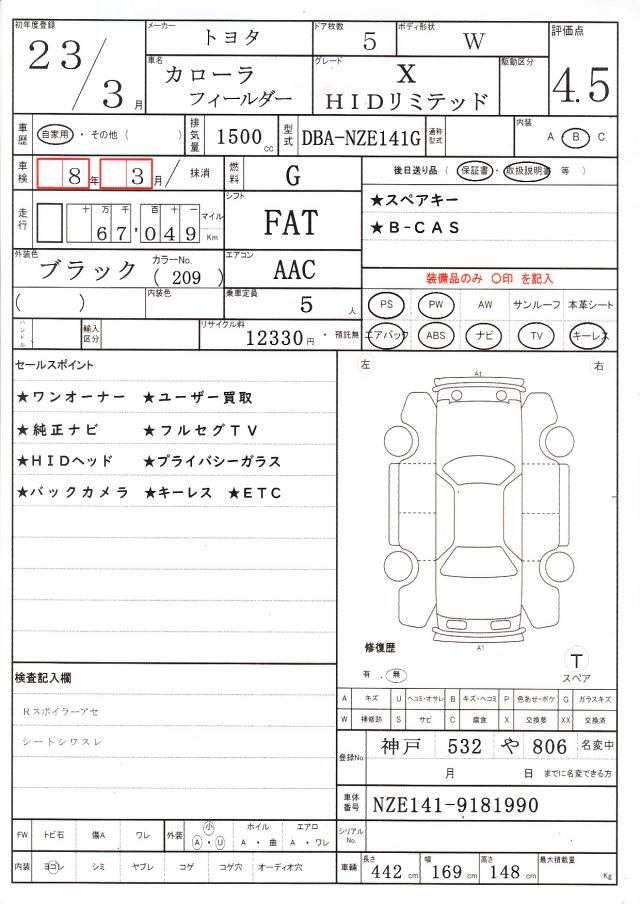 初年度登録 メーカー ドア枚数 ボディ形状 評価点
23/3月 トヨタ 5 W 4.5
車名 グレード 駆動区分
カローラ X
フィールダー HIDリミテッド
車歴 自家用・その他( ) 排気量 1500cc 型式 DBA-NZE141G 通称型式 内装 A・B C
車検 8年 3月/ 抹消 燃料 G 後日送り品(保証書・取扱説明書 等)
シフト
走行 十万千百十一 マイル Km FAT ★スペアキー
67,049 ★B-CAS
外装色 カラーNo. エアコン
ブラック (209) AAC 装備品のみ 〇印 を記入
( ) 内装色 乗車定員 5人 PS PW AW サンルーフ 本革シート
ハンドル 輸入区分 リサイクル料 12330円・預託無 エアバック ABS ナビ TV キーレス
セールスポイント 左 A1 右
★ワンオーナー ★ユーザー買取
★純正ナビ ★フルセグTV
★HIDヘッド ★プライバシーガラス
★バックカメラ ★キーレス ★ETC
修復歴 A1
有.無 T
スペア
検査記入欄
Rスポイラーアセ
シートシワスレ
A キズ U ヘコミ・オサレ B キズ・ヘコミ P 色あせ・ボケ G ガラスキズ
W 補修跡 S サビ C 腐食 X 交換要 XX 交換済
登録No. 神戸 532 や 806 名変中
月 日 までに名変できる方
車体番号 NZE141-9181990
シリアルNo.
FW トビ石 傷A ワレ 外装 小 A・U ホイル A・曲 エアロ A・ワレ
内装 ヨゴレ シミ ヤブレ コゲ コゲ穴 オーディオ穴
車輌 長さ 442cm 幅 169cm 高さ 148cm 最大積載量 Kg